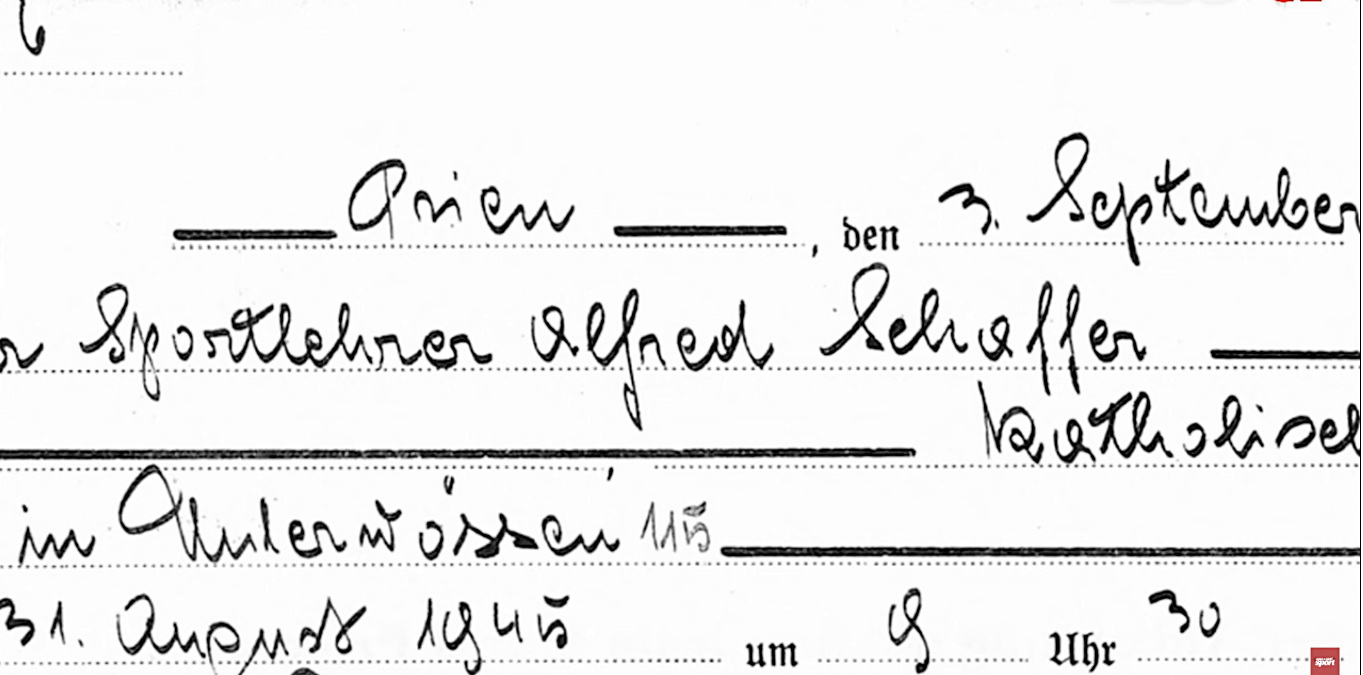 Prien, den 3. September
Sportlehrer Alfred Schaffer
katholisch
in Unterwössen 115
31. August 1945 um 9 Uhr 30
sport